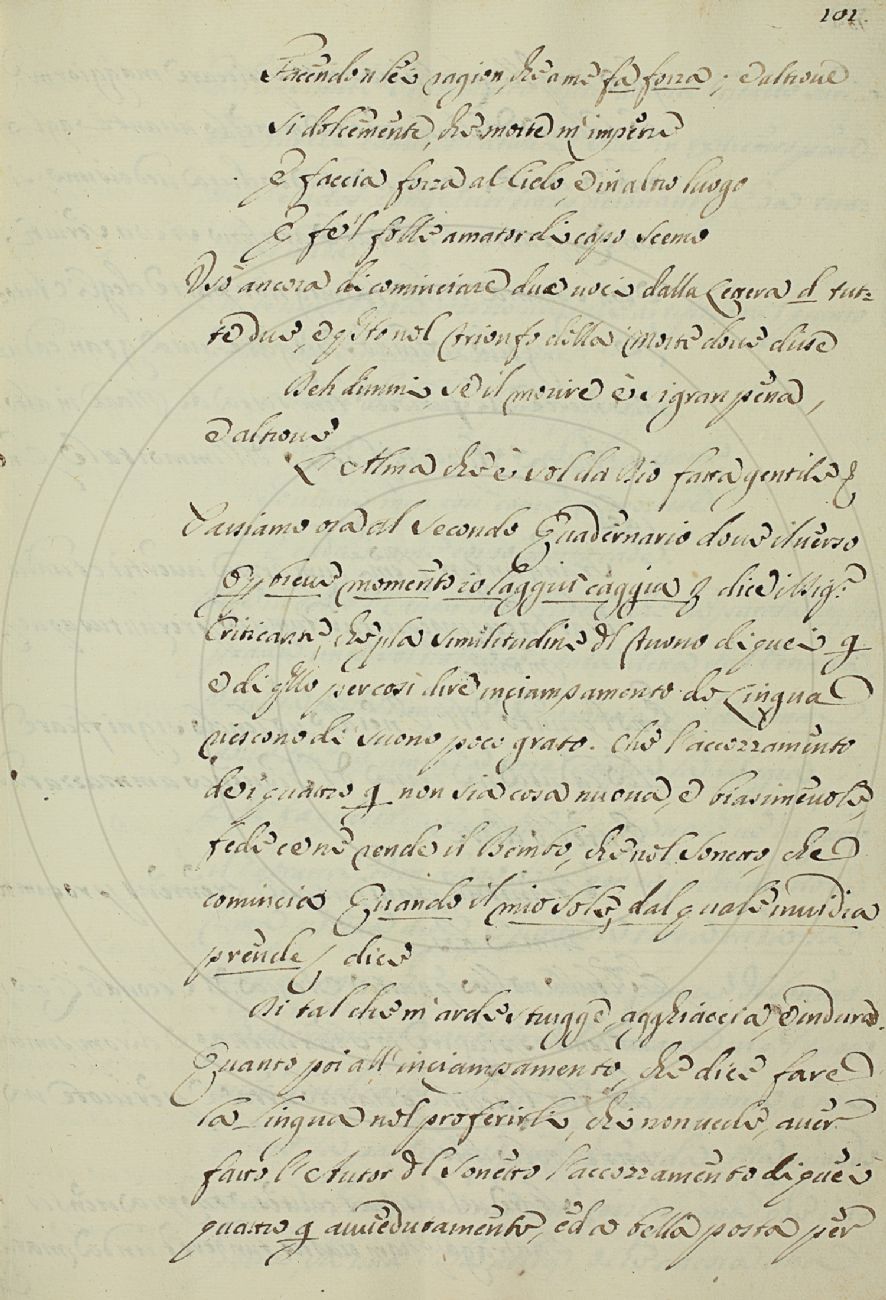 101.
Facendo a lei ragion, che a me fa forza; e altrove
Si dolcemente, che morte m'impetre
E faccia forza al Cielo, e in altro luogo
E fe'l folle amator di capo scemo
Usò ancora di cominciare due voci dalla Lettera d tut=
te due, e qsto nel Trionfo della Morte dove disse
Deh dimmi, se il morire è si gran pena,
e altrove
L'Alma che è sol da Dio fatta gentile
Passiamo ora al secondo Quadernario dove il verso
E p breve momento io laggiù caggia dice il Sigr
Criticante, che p la similitudine dl suono di quei g
e di qllo per così dire inciampamento de Lingua
riescono di suono poco grato. Che l'accozzamento
dei quattro g non sia cosa nuova, e biasimevole,
fede ce ne rende il Bembo, che nel Sonetto, che
comincia Quando il mio Sole, dal quale invidia
prende, dice
Di tal che m'arde strugge, agghiaccia, e indura.
Quanto poi all'inciampamento, che dice fare
la Lingua nel proferirli, chi non vede, aver
fatto l'Autor dl Sonetto l'accozzamento di quei
quattro g avvedutamente, ed a bella posta per